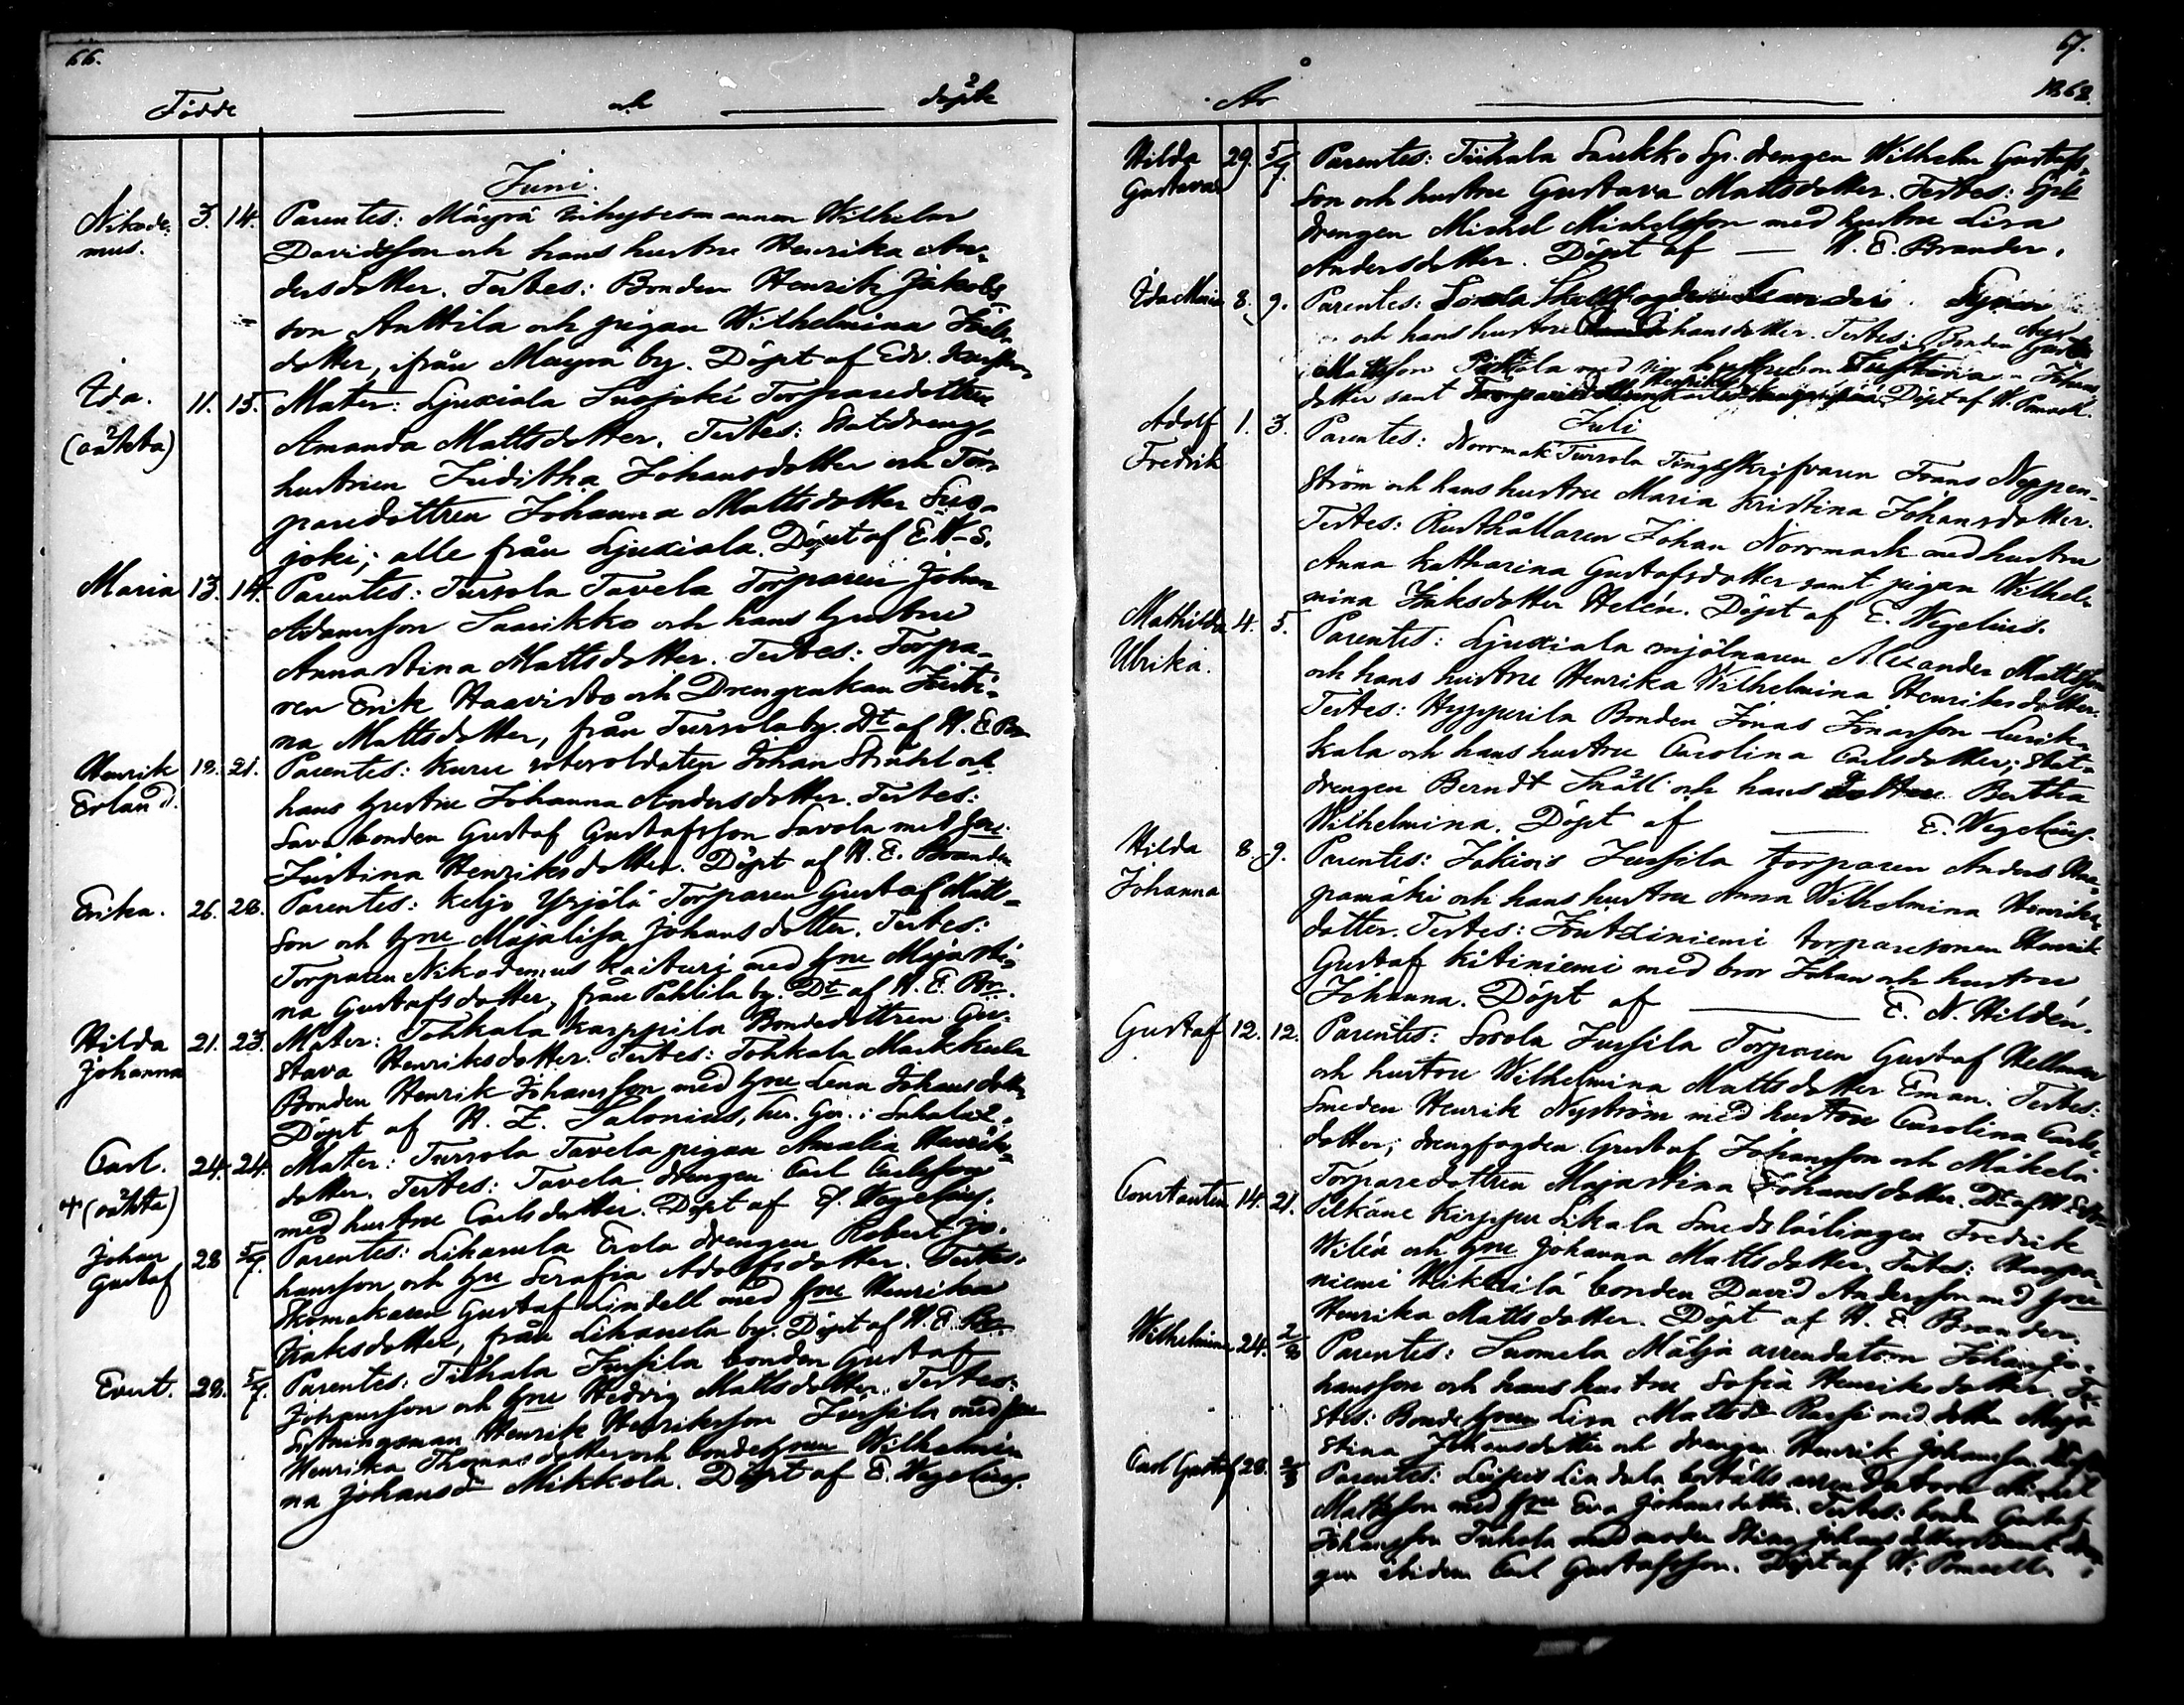 66.
Födde och döpte
Juni.
Nikode- 3. 14. Parentes: Mäyrä Wilhelm
mus. Davidsson och hans hustru Henrika An-
dersdotter. Testes: Bonden Henrik Jakobs
son Anttila och pigan Wilhelmina
dotter, ifrån Mäyrä by. Döpt af Edv.
Ida. 11. 15. Mater: Ljuxiala Suojoki Torparedottren
(oäkta) Amanda Mattsdotter. Testes: Statdrengs-
hustrun Juditha Johansdotter och Tor-
paredottren Johanna Mattsdotter Suo-
joki; alle från Ljuxiala. Döpt af E. W-s.
Maria 13. 14. Parentes: Tursola Tavela Torparen Johan
Adamsson Saarikko och hans hustru
Annastina Mattsdotter. Testes: Torpa-
ren Erik Haavisto och Drengenkan Justi-
na Mattsdotter, från Tursola by. Dt af H. E. Br
Henrik 18. 21. Parentes: Kuru rotesoldaten Johan Stråhl och
Erland. hans hustru Johanna Andersdotter. Testes:
Savo bonden Gustaf Gustafsson Savola med hu:
Justina Henriksdotter. Döpt af H. E. Brander
Erika. 26. 28. Parentes: Keljo Yrjölä Torparen Gustaf Matts-
son och hru Majalisa Johansdotter. Testes:
Torparen Nikodemus Kaituri med hru Majasti-
na Gustafsdotter, från Pahlila by. Dt af H. E. Br.
Hilda 21. 23. Mater: Tohkala Karppila Bondedottren Gu-
Johanna stava Henriksdotter. Testes: Tohkala Markkula
Bonden Henrik Johansson med hru Lena Johansdotter
Döpt af H. Z. Salonius,
Carl. 24. 24. Mater: Tursola Tavela pigan Amalia Henriks-
+ (oäkta) dotter. Testes: Tavela drengen Carl Carlsson
med hustru Carlsdotter. Döpt af E. Wegelius.
Johan 28 5/7. Parentes: Lihasula Erola drengen Robert Jo-
Gustaf hansson och hru Serafia Adolfsdotter. Testes:
Skomakaren Gustaf Lindell med hru Henrika
Isaksdotter, från Lihasula by. Döpt af H. E. Br.
Evert. 28. 5/7. Parentes: Tiihala Jussila bonden Gustaf
Johansson och hru Hedvig Mattsdotter. Testes:
Sytningsman Henrik Henriksson Jussila med hru
Henrika Thomasdotter och bondehrun Wilhelmin
na Johansdr Mikkola. Döpt af E. Wegelius.
67.
År 1868.
Hilda 29. 5/7. Parentes: Tiihala Saukko drengen Wilhelm Gustafs
Gustava son och hustru Gustava Mattsdotter. Testes:
drengen Michel Michelsson med hustru Lisa
Andersdotter. Döpt af H. E. Brander.
Ida Maria 8. 9. Parentes:
och hans hustru Johansdotter. Testes: Bonden
Mattsson med Justina Johans
dotter samt Döpt af
Juli
Adolf 1. 3. Parentes: Norrmark Tursola Tingsskrifvaren Frans Neppen-
Fredrik ström och hans hustru Maria Kristina Johansdotter.
Testes: Rusthållaren Johan Norrmark med hustru
Anna Katharina Gustafsdotter samt pigan Wilhel-
mina Isaksdotter Helén. Döpt af E. Wegelius.
Mathilda 4. 5. Parentes: Ljuxiala mjölnaren Alexander Mattsson
Ulrika. och hans hustru Henrika Wilhelmina Henriksdotter.
Testes: Hypperilä Bonden Jonas Jonasson
kala och hans hustru Carolina Carlsdotter; Stat-
drengen Berndt Ståll och hans dotter Bertha
Wilhelmina. Döpt af E. Wegelius.
Hilda 8. 9. Parentes: Jussila torparen Anders Haa-
Johanna pamäki och hans hustru Anna Wilhelmina Henriks
dotter. Testes: torparesonen Henrik
Gustaf Kitiniemi med bror Johan och hustru
Johanna. Döpt af E. N. Hildén.
Gustaf 12. 12. Parentes: Sorola Jussila Torparen Gustaf Hellman
och hustru Wilhelmina Mattsdotter Eman. Testes:
Smeden Henrik Nyström med hustru Carolina Carls
dotter; drengfogden Gustaf Johansson och Mäkelä
Torparedottren Majastina Johansdotter. Dt af
Constantin 14. 21. Pelkäne Kirppu Sikala Smedslärlingen Fredrik
Wilén och hru Johanna Mattsdotter. Testes: Haapa-
niemi Heikkilä bonden David Andersson med hru
Henrika Mattsdotter. Döpt af H. E. Brander.
Wilhelmina 24. 2/8 Parentes: Suomela Mälja arrendatorn Johan Jo-
hansson och hans hustru Sofia Henriksdotter. Te-
stes: Bondehrun Lisa Mattsdr Rassi med dotter Maja
stina Johansdotter och drengen Henrik Johansson.
Carl Gustaf 28. 2/8 Parentes: arrendatorn Michel
Mattsson med hru Eva Johansdotter. Testes: bonden Gustaf
Johansson med moder Stina Johansdotter samt dren-
gen ibidem Carl Gustafsson. Döpt af